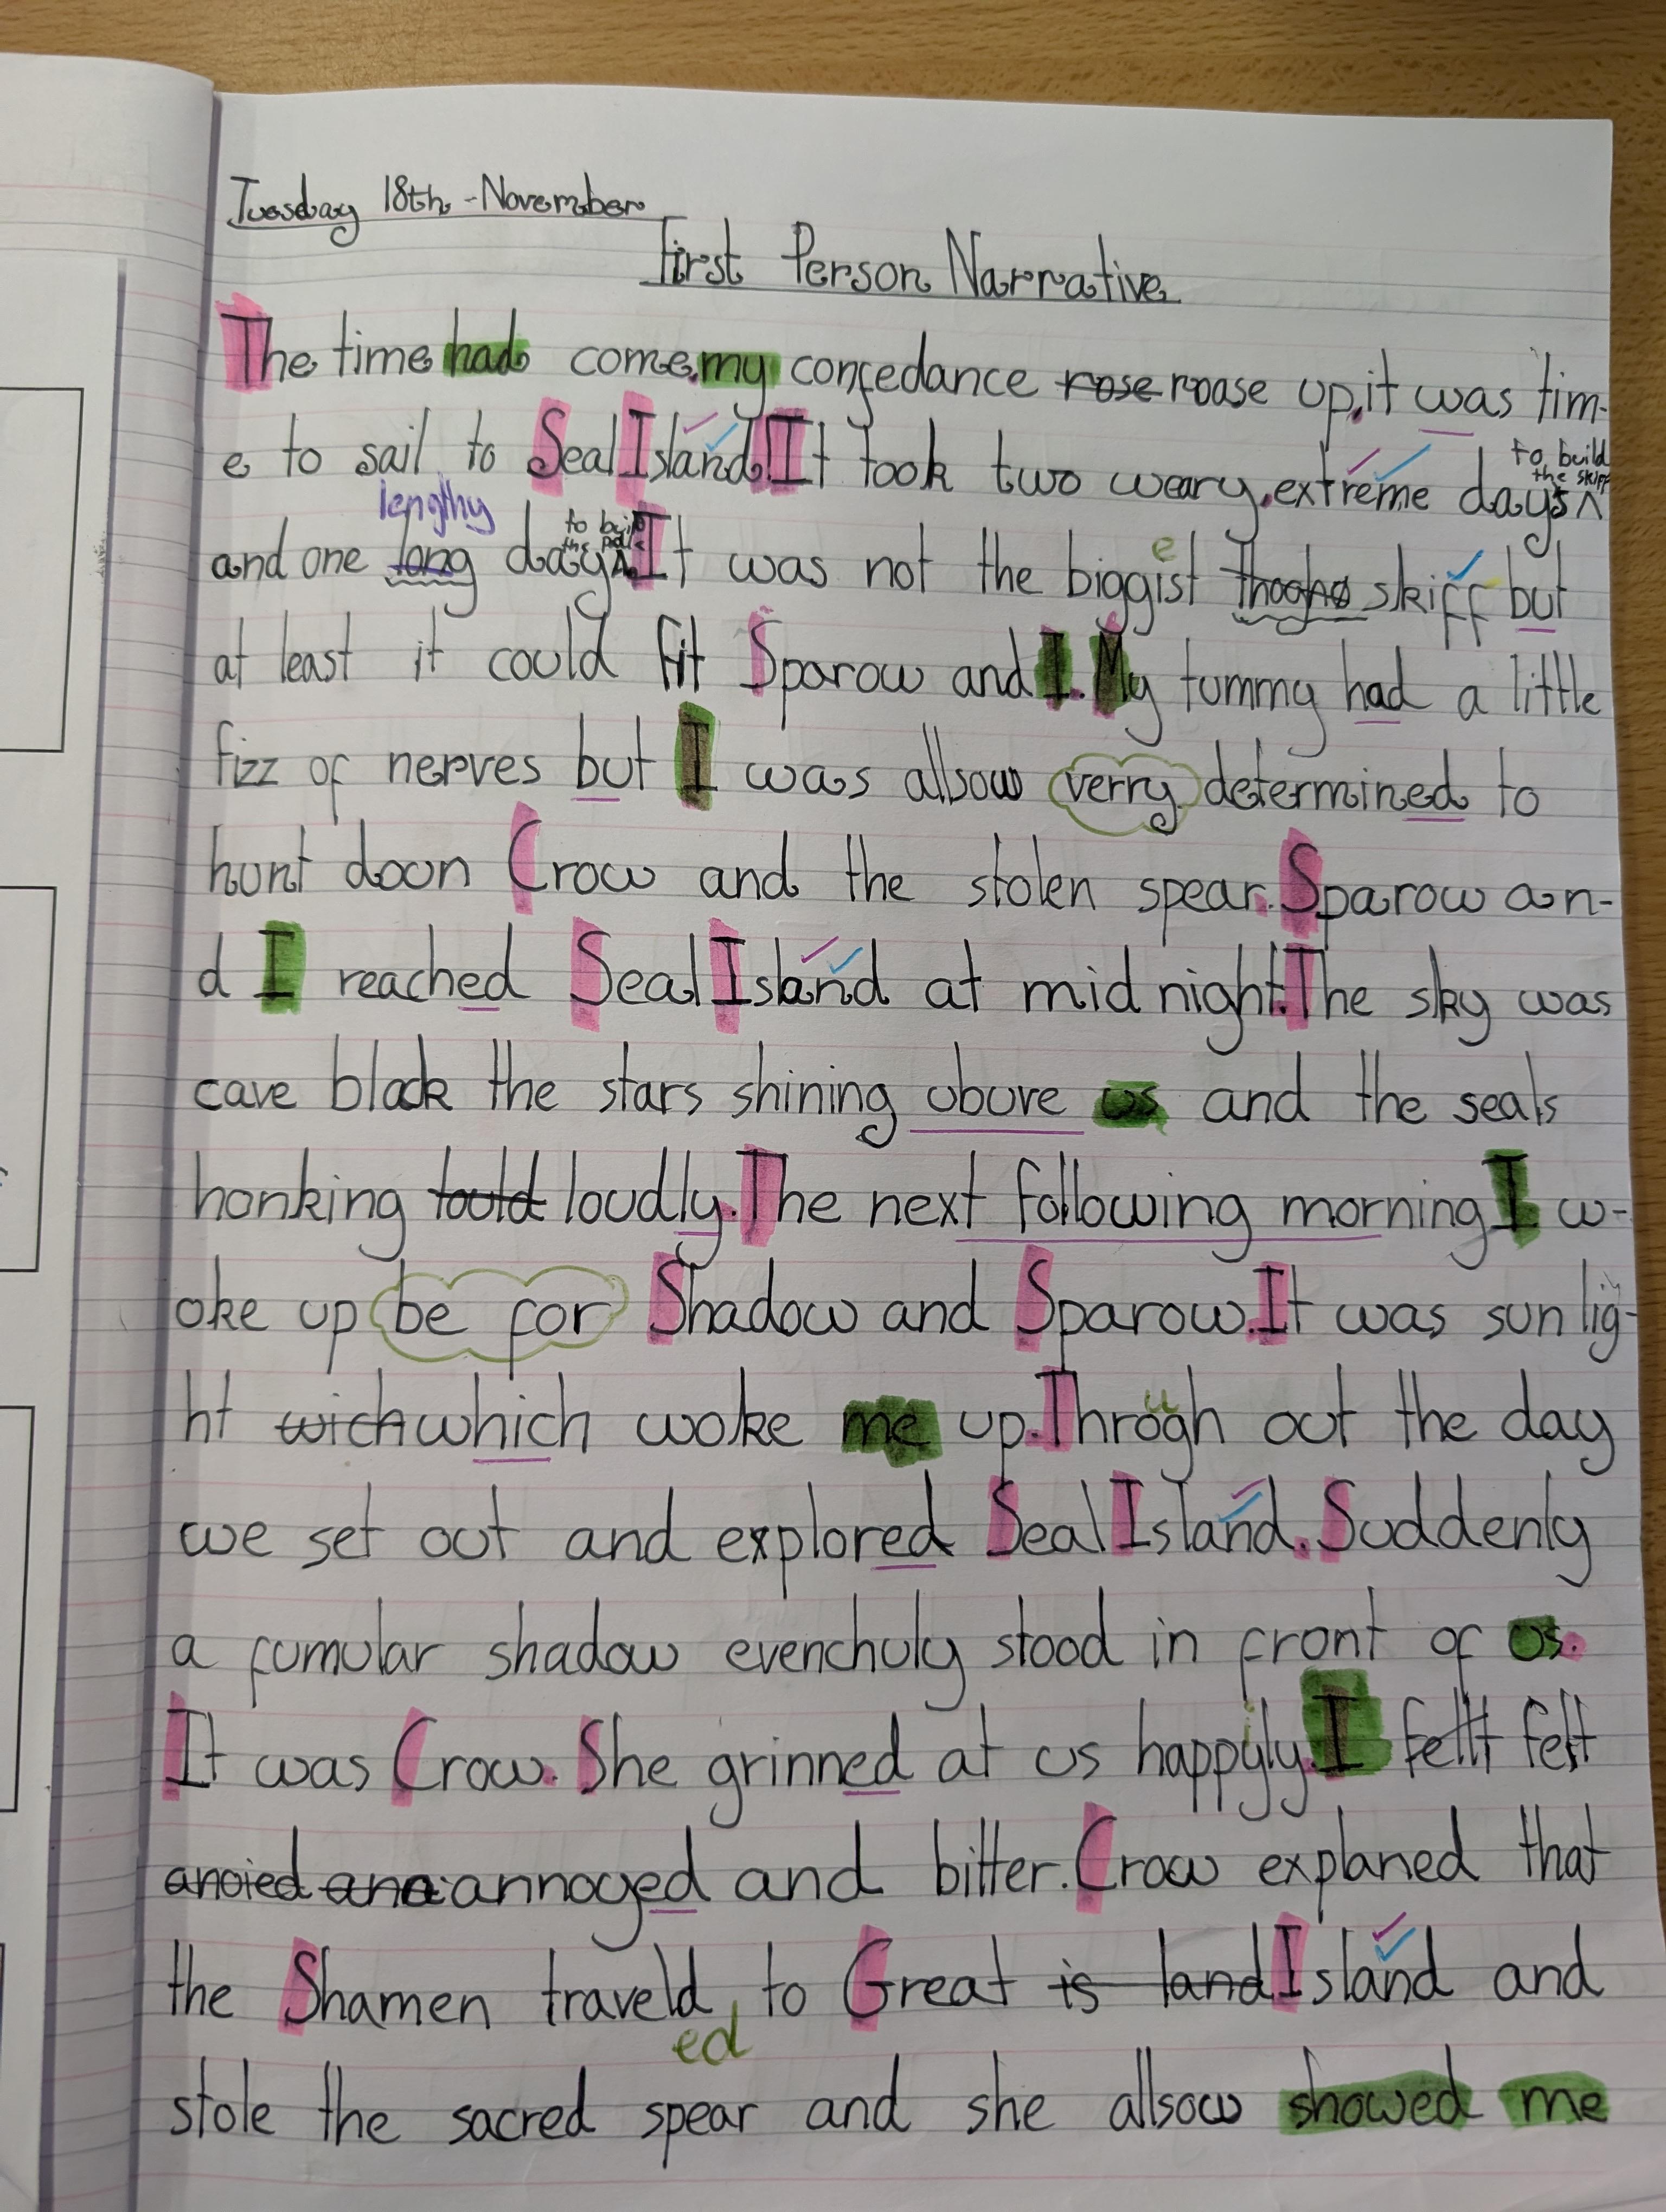 Tuesday 18th - November
First Person Narrative
The time had come, my confedance rose roase up, it was tim-
e to sail to Seal Island. It took two weary, extreme days ^ to build the skiff
and one long lengthy day ^ to build the It was not the biggist e skiff but
at least it could fit Sparow and I. My tummy had a little
fizz of nerves but I was allsow verry determined to
hunt doon Crow and the stolen spear. Sparow an-
d I reached Seal Island at mid night. The sky was
cave black the stars shining obove us and the seals
honking tould loudly. The next following morning I w-
oke up be for Shadow and Sparow. It was sun lig-
ht wich which woke me up. Throgh u out the day
we set out and explored Seal Island. Suddenly
a fumular shadow evenchuly stood in front of us.
It was Crow. She grinned at us happyly. i I fellt felt
anoied ana annoyed and bitter. Crow explaned that
the Shamen traveld ed to Great is land Island and
stole the sacred spear and she allsow showed me